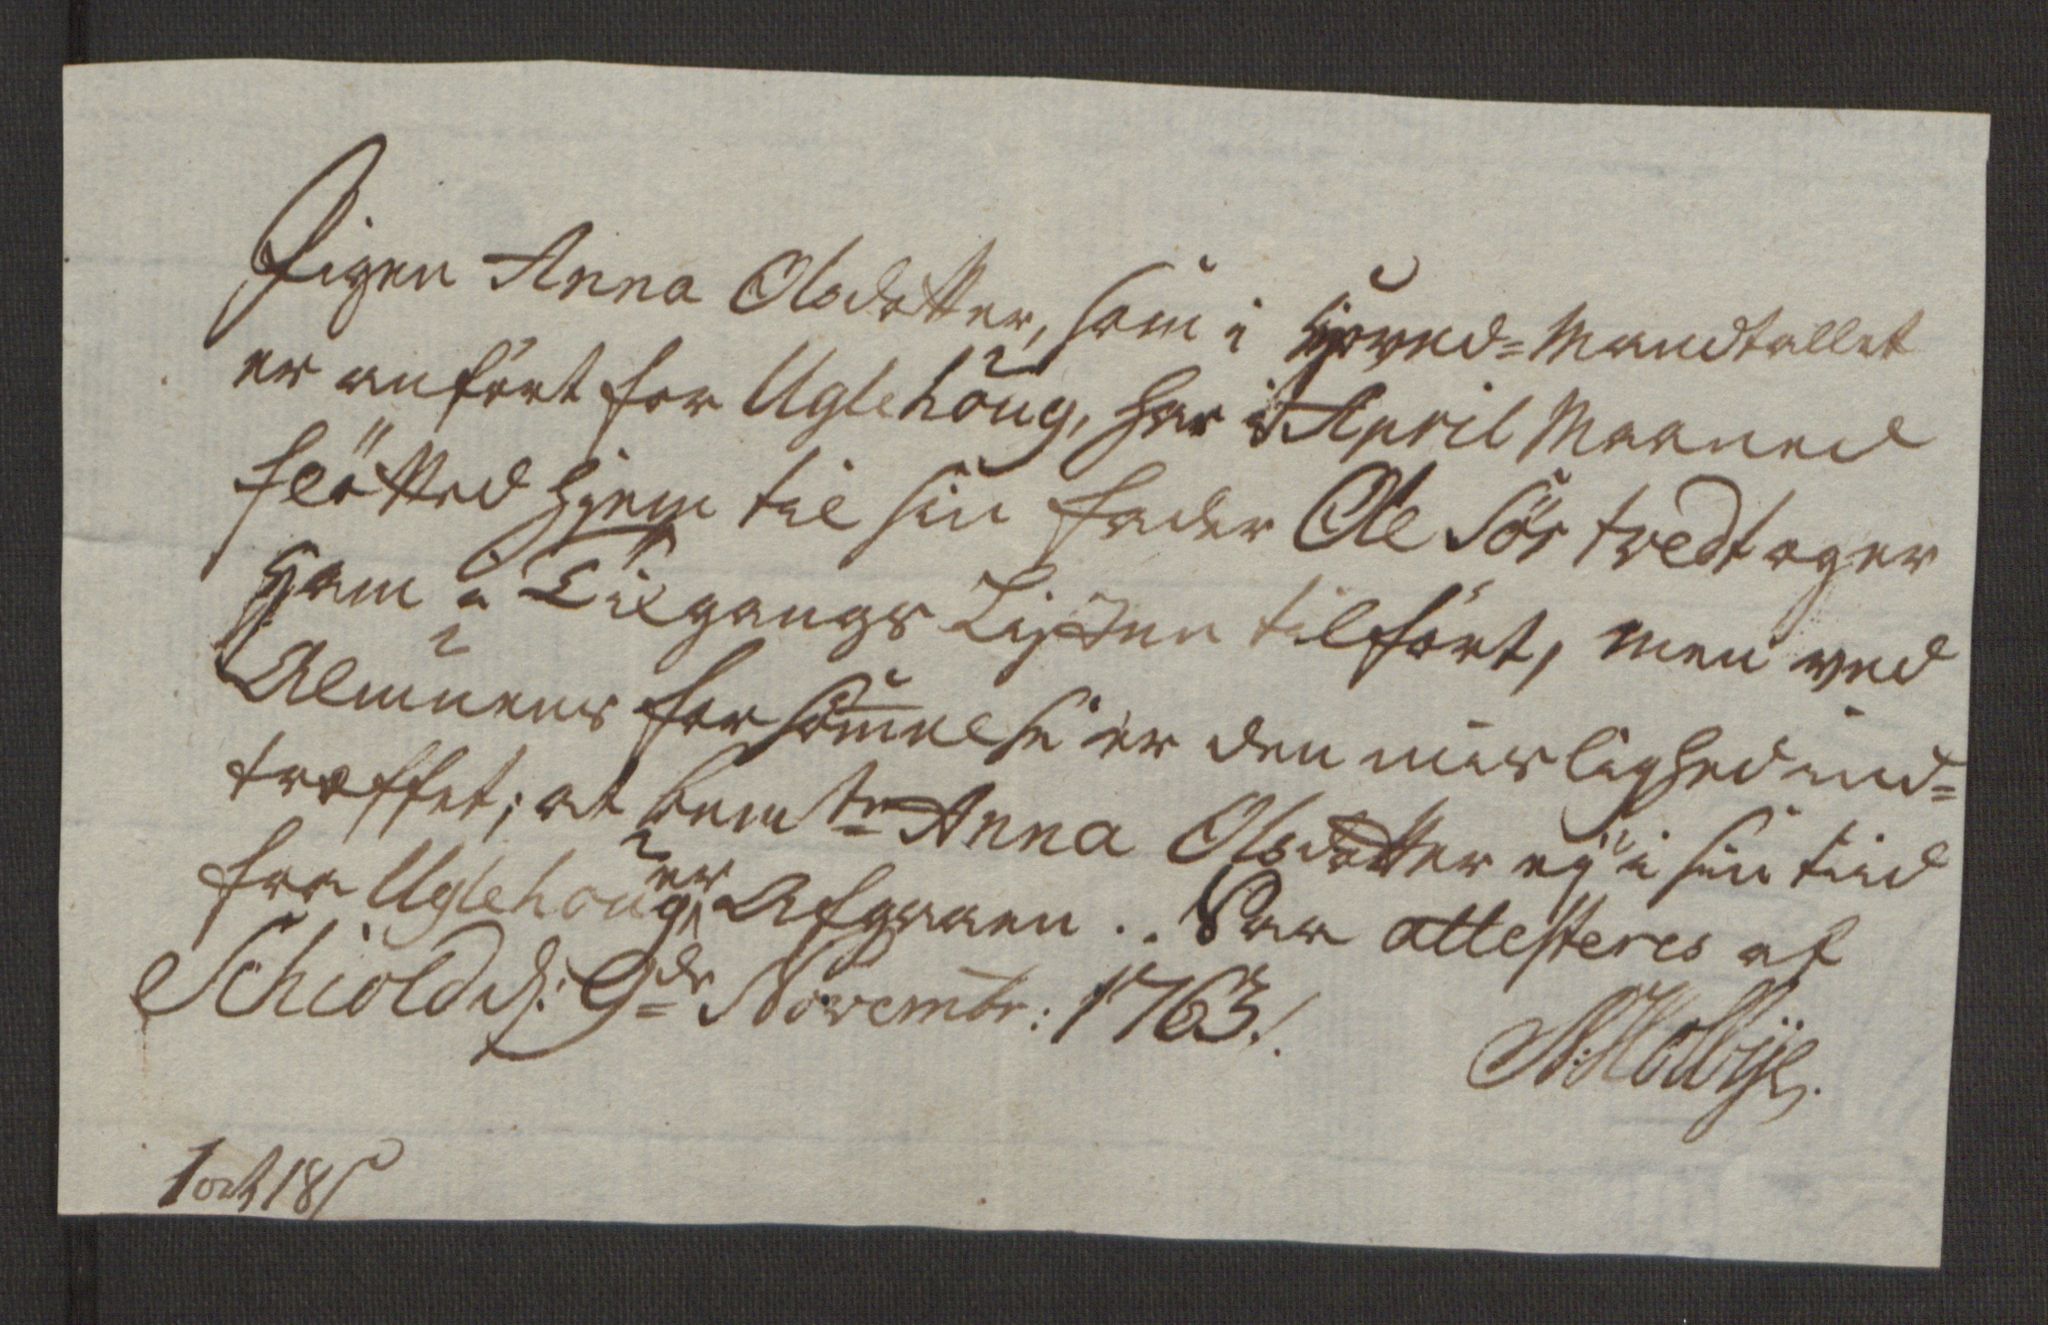 Pigen Anna Olsdotter, som i Hoved=Mandtallet
er anført for Uglehoug, har i April Maaned
fløtted hiem til sin fader Ole Sør tredt oger
ham i Tilgangs Listen tilført, men ved
Almuens forsømmelse er den uurlighed ind=
træffet; at bemte Anna Olsdotter ey i sin tiid
fra Uglehoug er Afgaaen .. Saa attesteres af
Schiold d: 9de Novembr: 1763.
N: Holbye.
1 ort 18 s